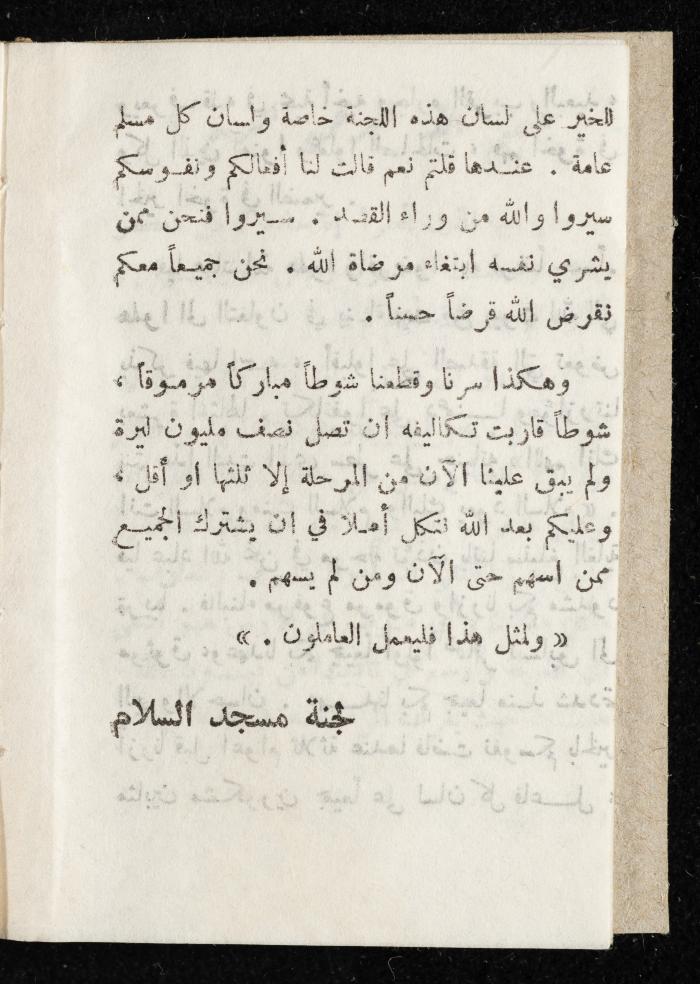 للخير على لسان هذه اللجنة خاصة ولسان كل مسلم
عامة . عندها قلتم نعم قالت لنا أفعالكم ونفوسكم
سيروا والله من وراء القصد . سيروا فنحن ممن
يشري نفسه ابتغاء مرضاة الله . نحن جميعاً معكم
نقرض الله قرضاً حسناً .
وهكذا سرنا وقطعنا شوطاً مباركاً مرموقاً ،
شوطاً قاربت تكاليفه ان تصل نصف مليون ليرة
ولم يبق علينا الآن من المرحلة إلا ثلثها او أقل ،
وعليكم بعد الله نتكل أملاً في ان يشترك الجميع
ممن اسهم حتى الآن ومن لم يسهم .
« ولمثل هذا فليعمل العاملون . »
لجنة مسجد السلام